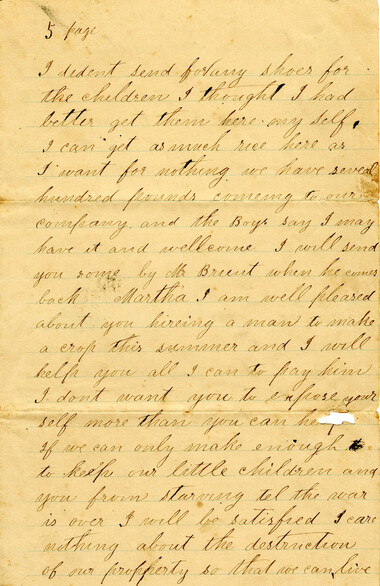 5 page
I dident send for any shoes for
the children I thought I had
better get them here my self,
I can get as much rice here as
I want for nothing we have several
hundred pounds comeing to our
company and the Boys say I may
have it and wellcome I will send
you some by Mr Bruint when he comes
back Martha I am well pleased
about you hireing a man to make
a crop this summer and I will
help you all I can to pay him
I dont want you to expose your
self more than you can he
If we can only make enough
to keep our little children and
you from starving tel the war
is over I will be satisfied I care
nothing about the destruction
of our property so that we can live